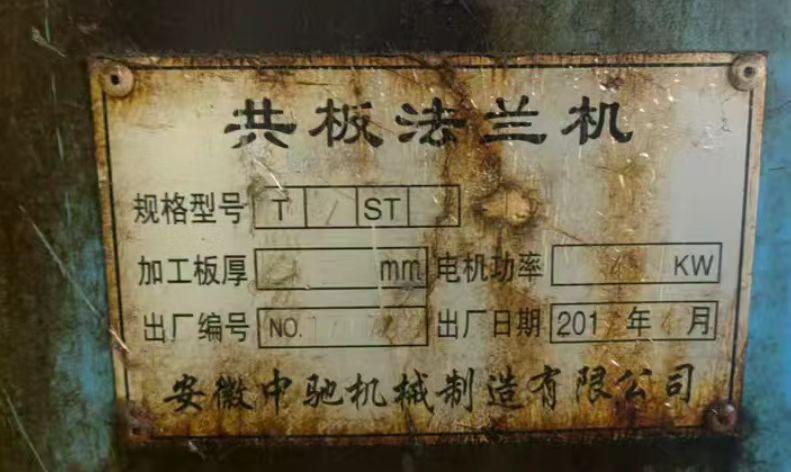 共板法兰机
规格型号 T ST
加工板厚 mm 电机功率 KW
出厂编号 NO. 出厂日期 201 年 月
安徽中驰机械制造有限公司